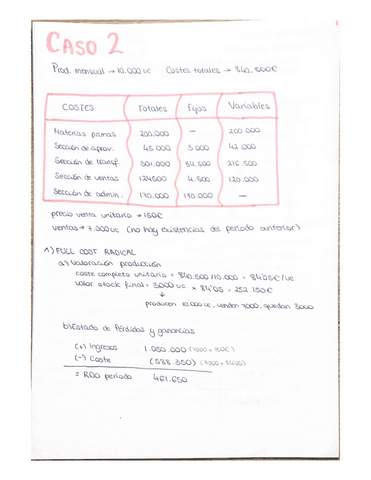 CASO 2
Prod. mensual → 10.000 uc Costes totales → 840.500€
COSTES Totales Fijos Variables
Materias primas 200.000 — 200.000
Sección de aprov. 45.000 3.000 42.000
Sección de transf. 301.000 84.500 216.500
Sección de ventas 124500 4.500 120.000
Sección de admin. 170.000 170.000 —
precio venta unitario → 150€
ventas → 7.000 uc (no hay existencias del período anterior)
1) FULL COST RADICAL
a) Valoración producción
coste completo unitario = 840.500/10.000 = 84'05€/uc
valor stock final = 3000 uc x 84'05 = 252.150€
↓
producen 10.000 uc, venden 7000, quedan 3000
b) Estado de Pérdidas y ganancias
(+) Ingresos 1.050.000 (7000 x 150€)
(-) Coste (588.350) (7000 x 84'05)
= RDO período 461.650